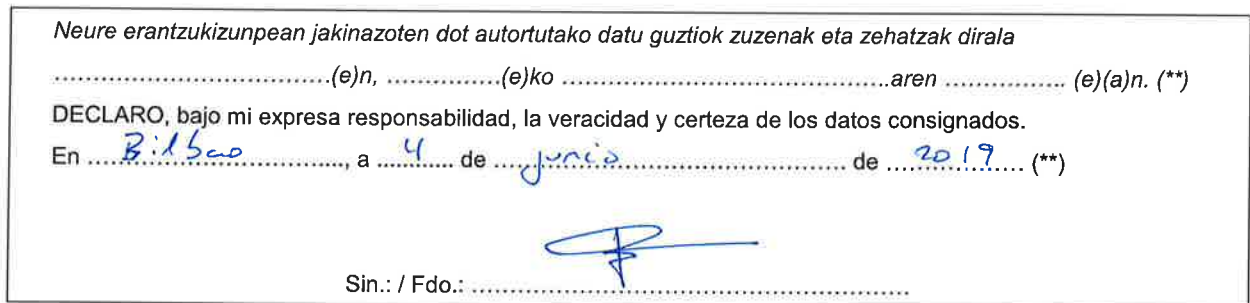 Neure erantzukizunpean jakinazoten dot autortutako datu guztiok zuzenak eta zehatzak dirala
..................................(e)n, ..............(e)ko .......................................aren .............. (e)(a)n. (**)
DECLARO, bajo mi expresa responsabilidad, la veracidad y certeza de los datos consignados.
En ...Bilbao..................., a ...4.... de ....junio.............................. de ...2019.... (**)
Sin.: / Fdo.: .....................................................